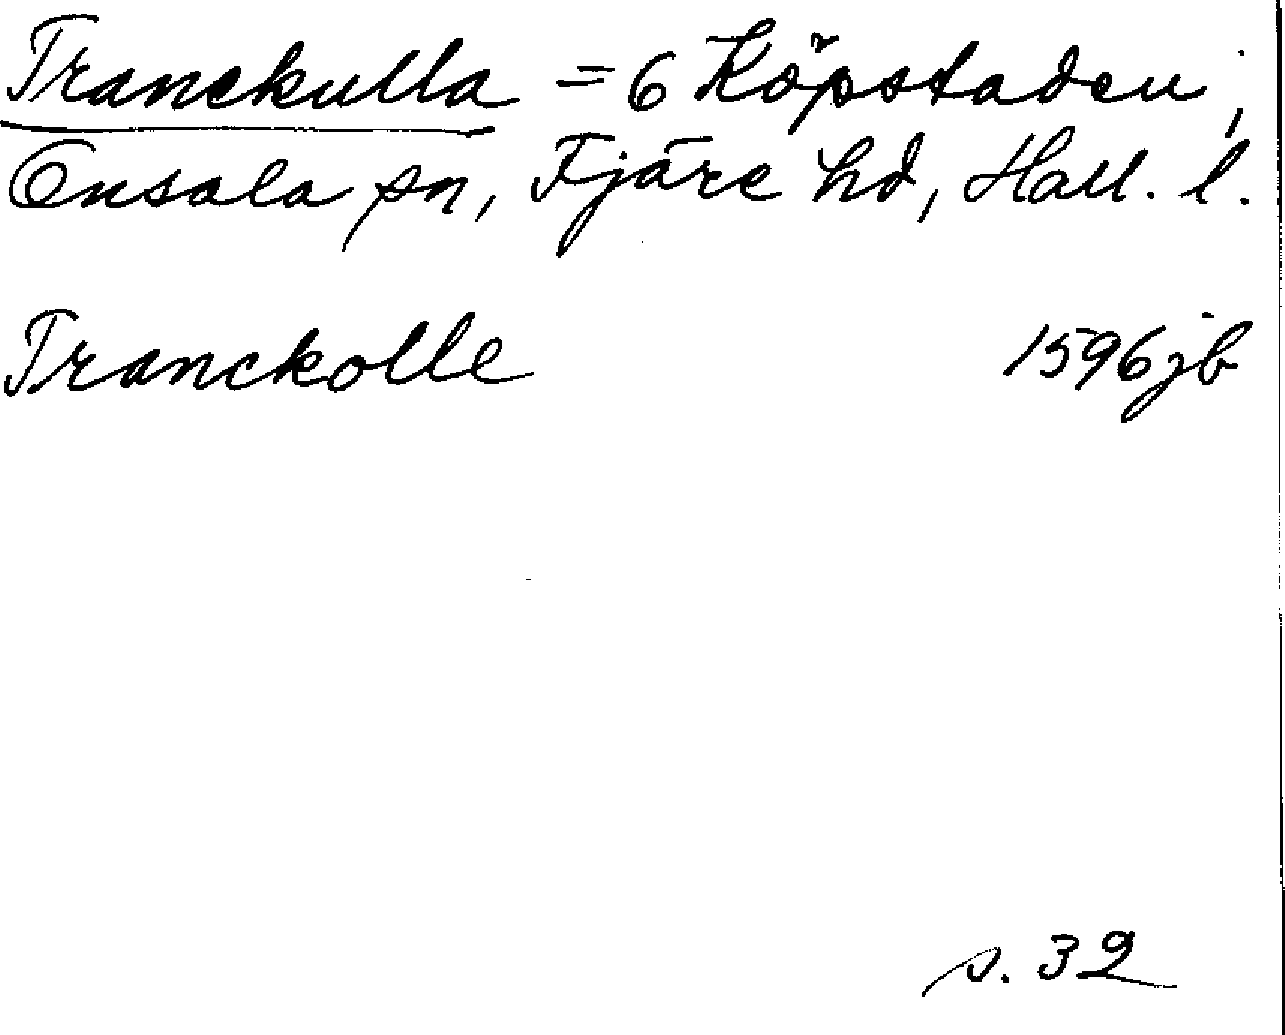 Tranekulla = 6 Köpstaden,
Onsala sn, Fjäre hd, Hall. l.
Tranckolle 1596 jb
s. 32